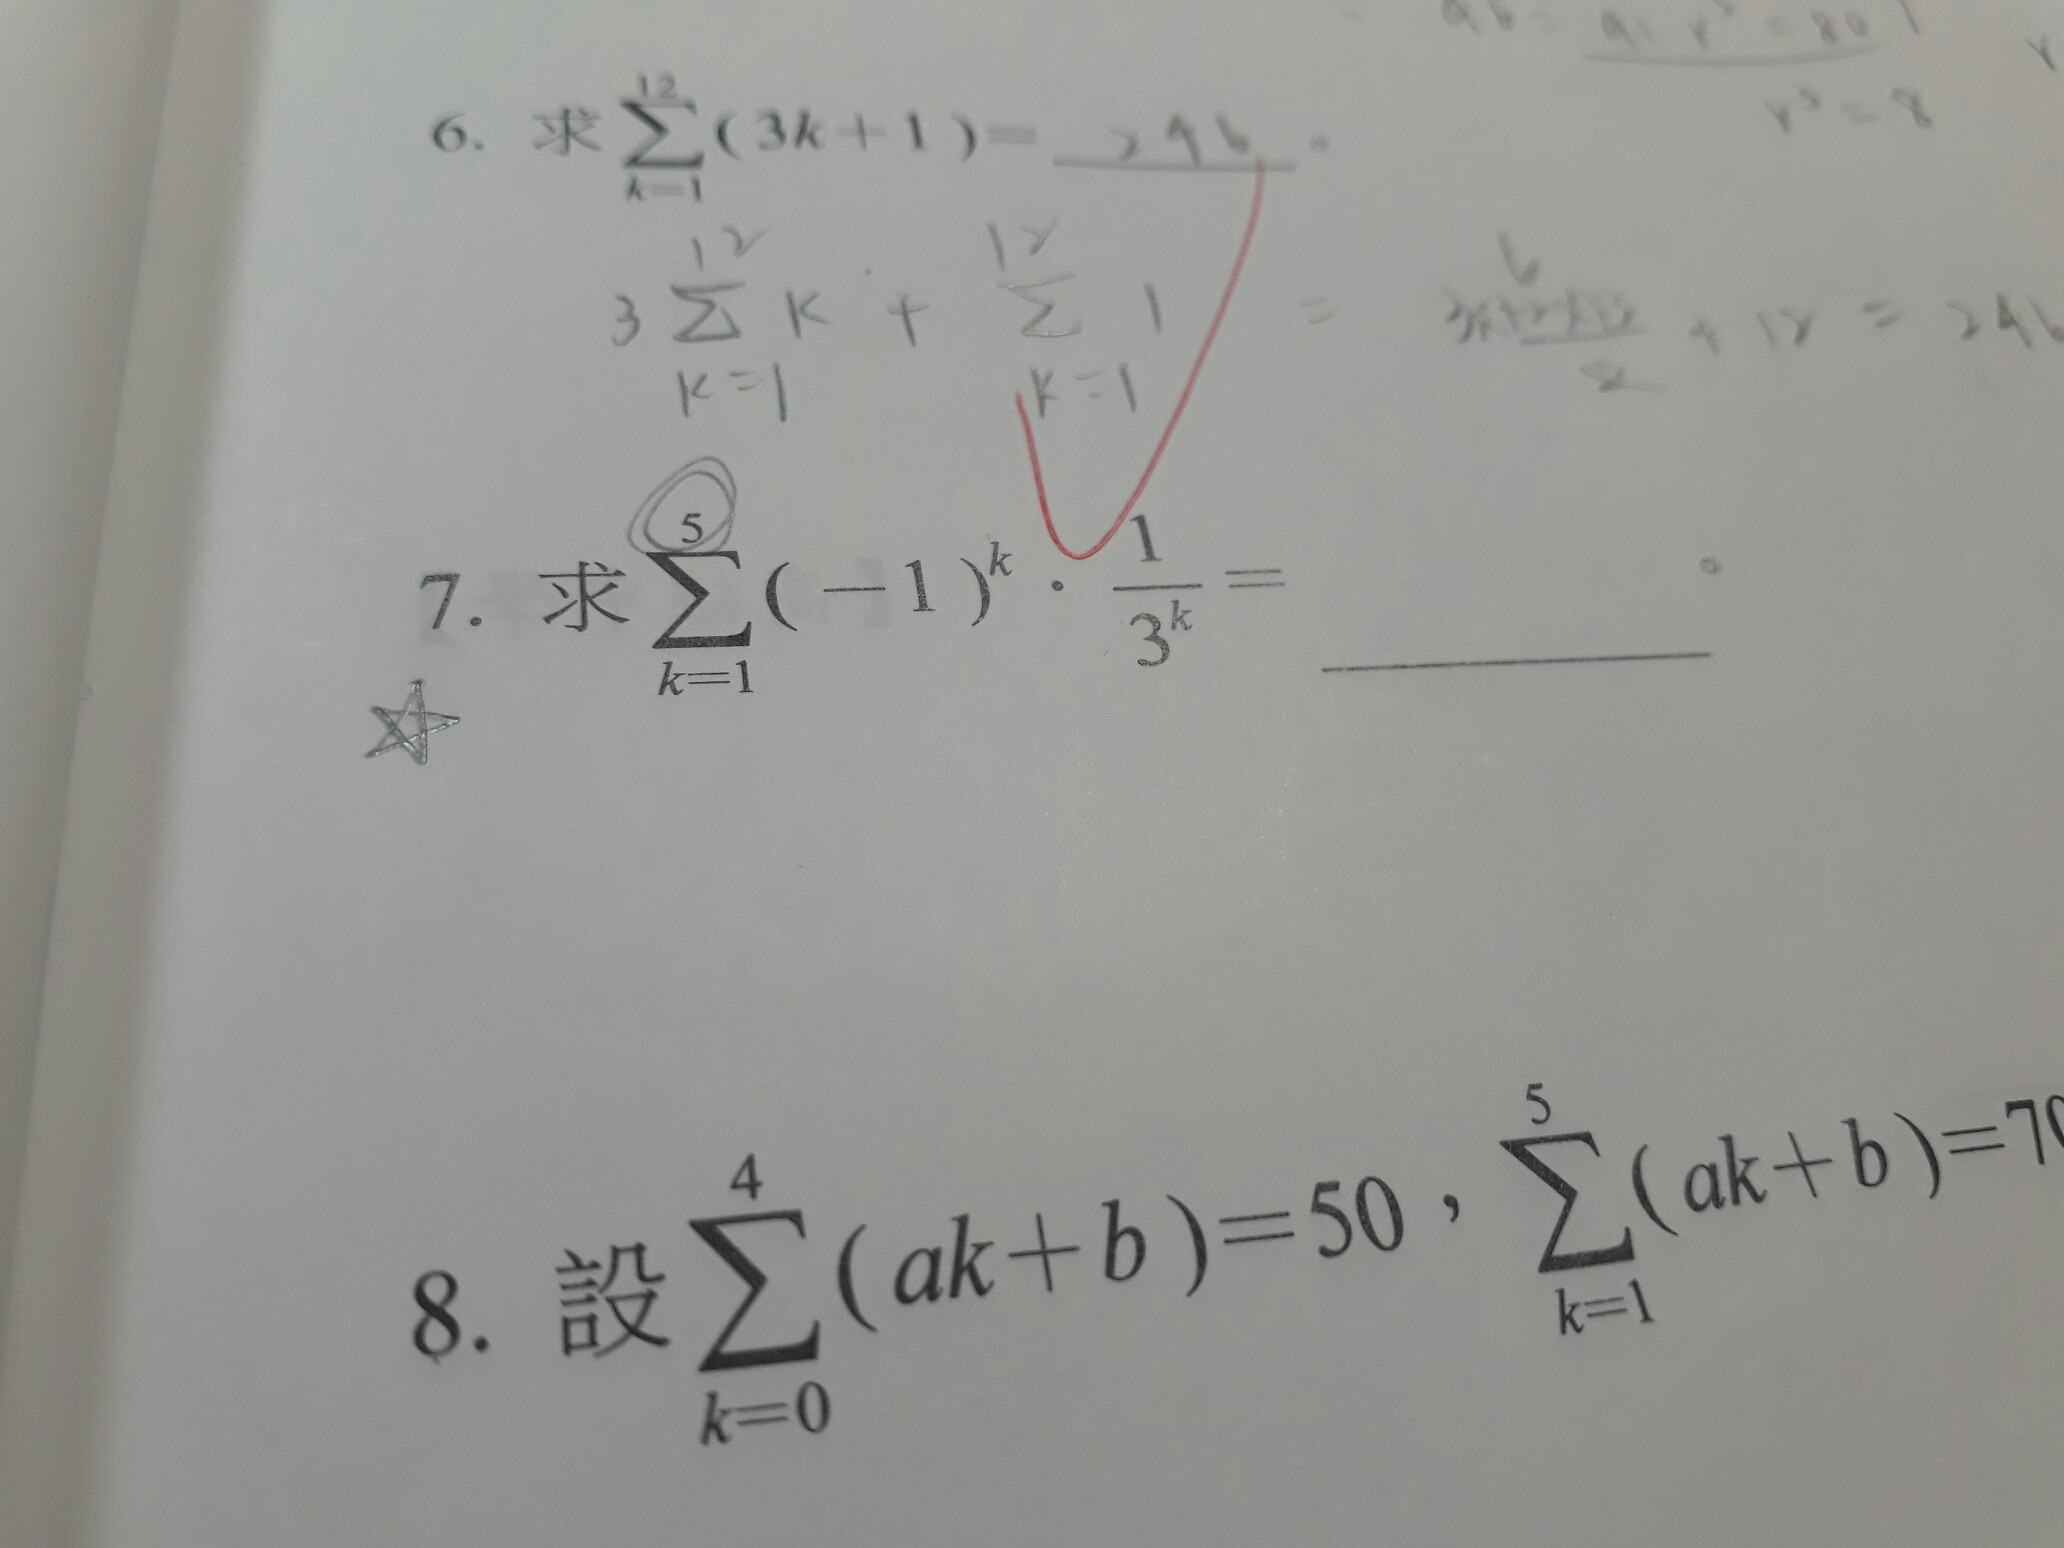 a₁ r³ = 80
r³ = 8
6. 求 ∑_{k=1}^{12} (3k+1) = 246 。
3 ∑_{k=1}^{12} k + ∑_{k=1}^{12} 1 = + 12 = 246
7. 求 ∑_{k=1}^{5} (−1)^k · 1/3^k = ______ 。
8. 設 ∑_{k=0}^{4} (ak+b) = 50 , ∑_{k=1}^{5} (ak+b) = 70